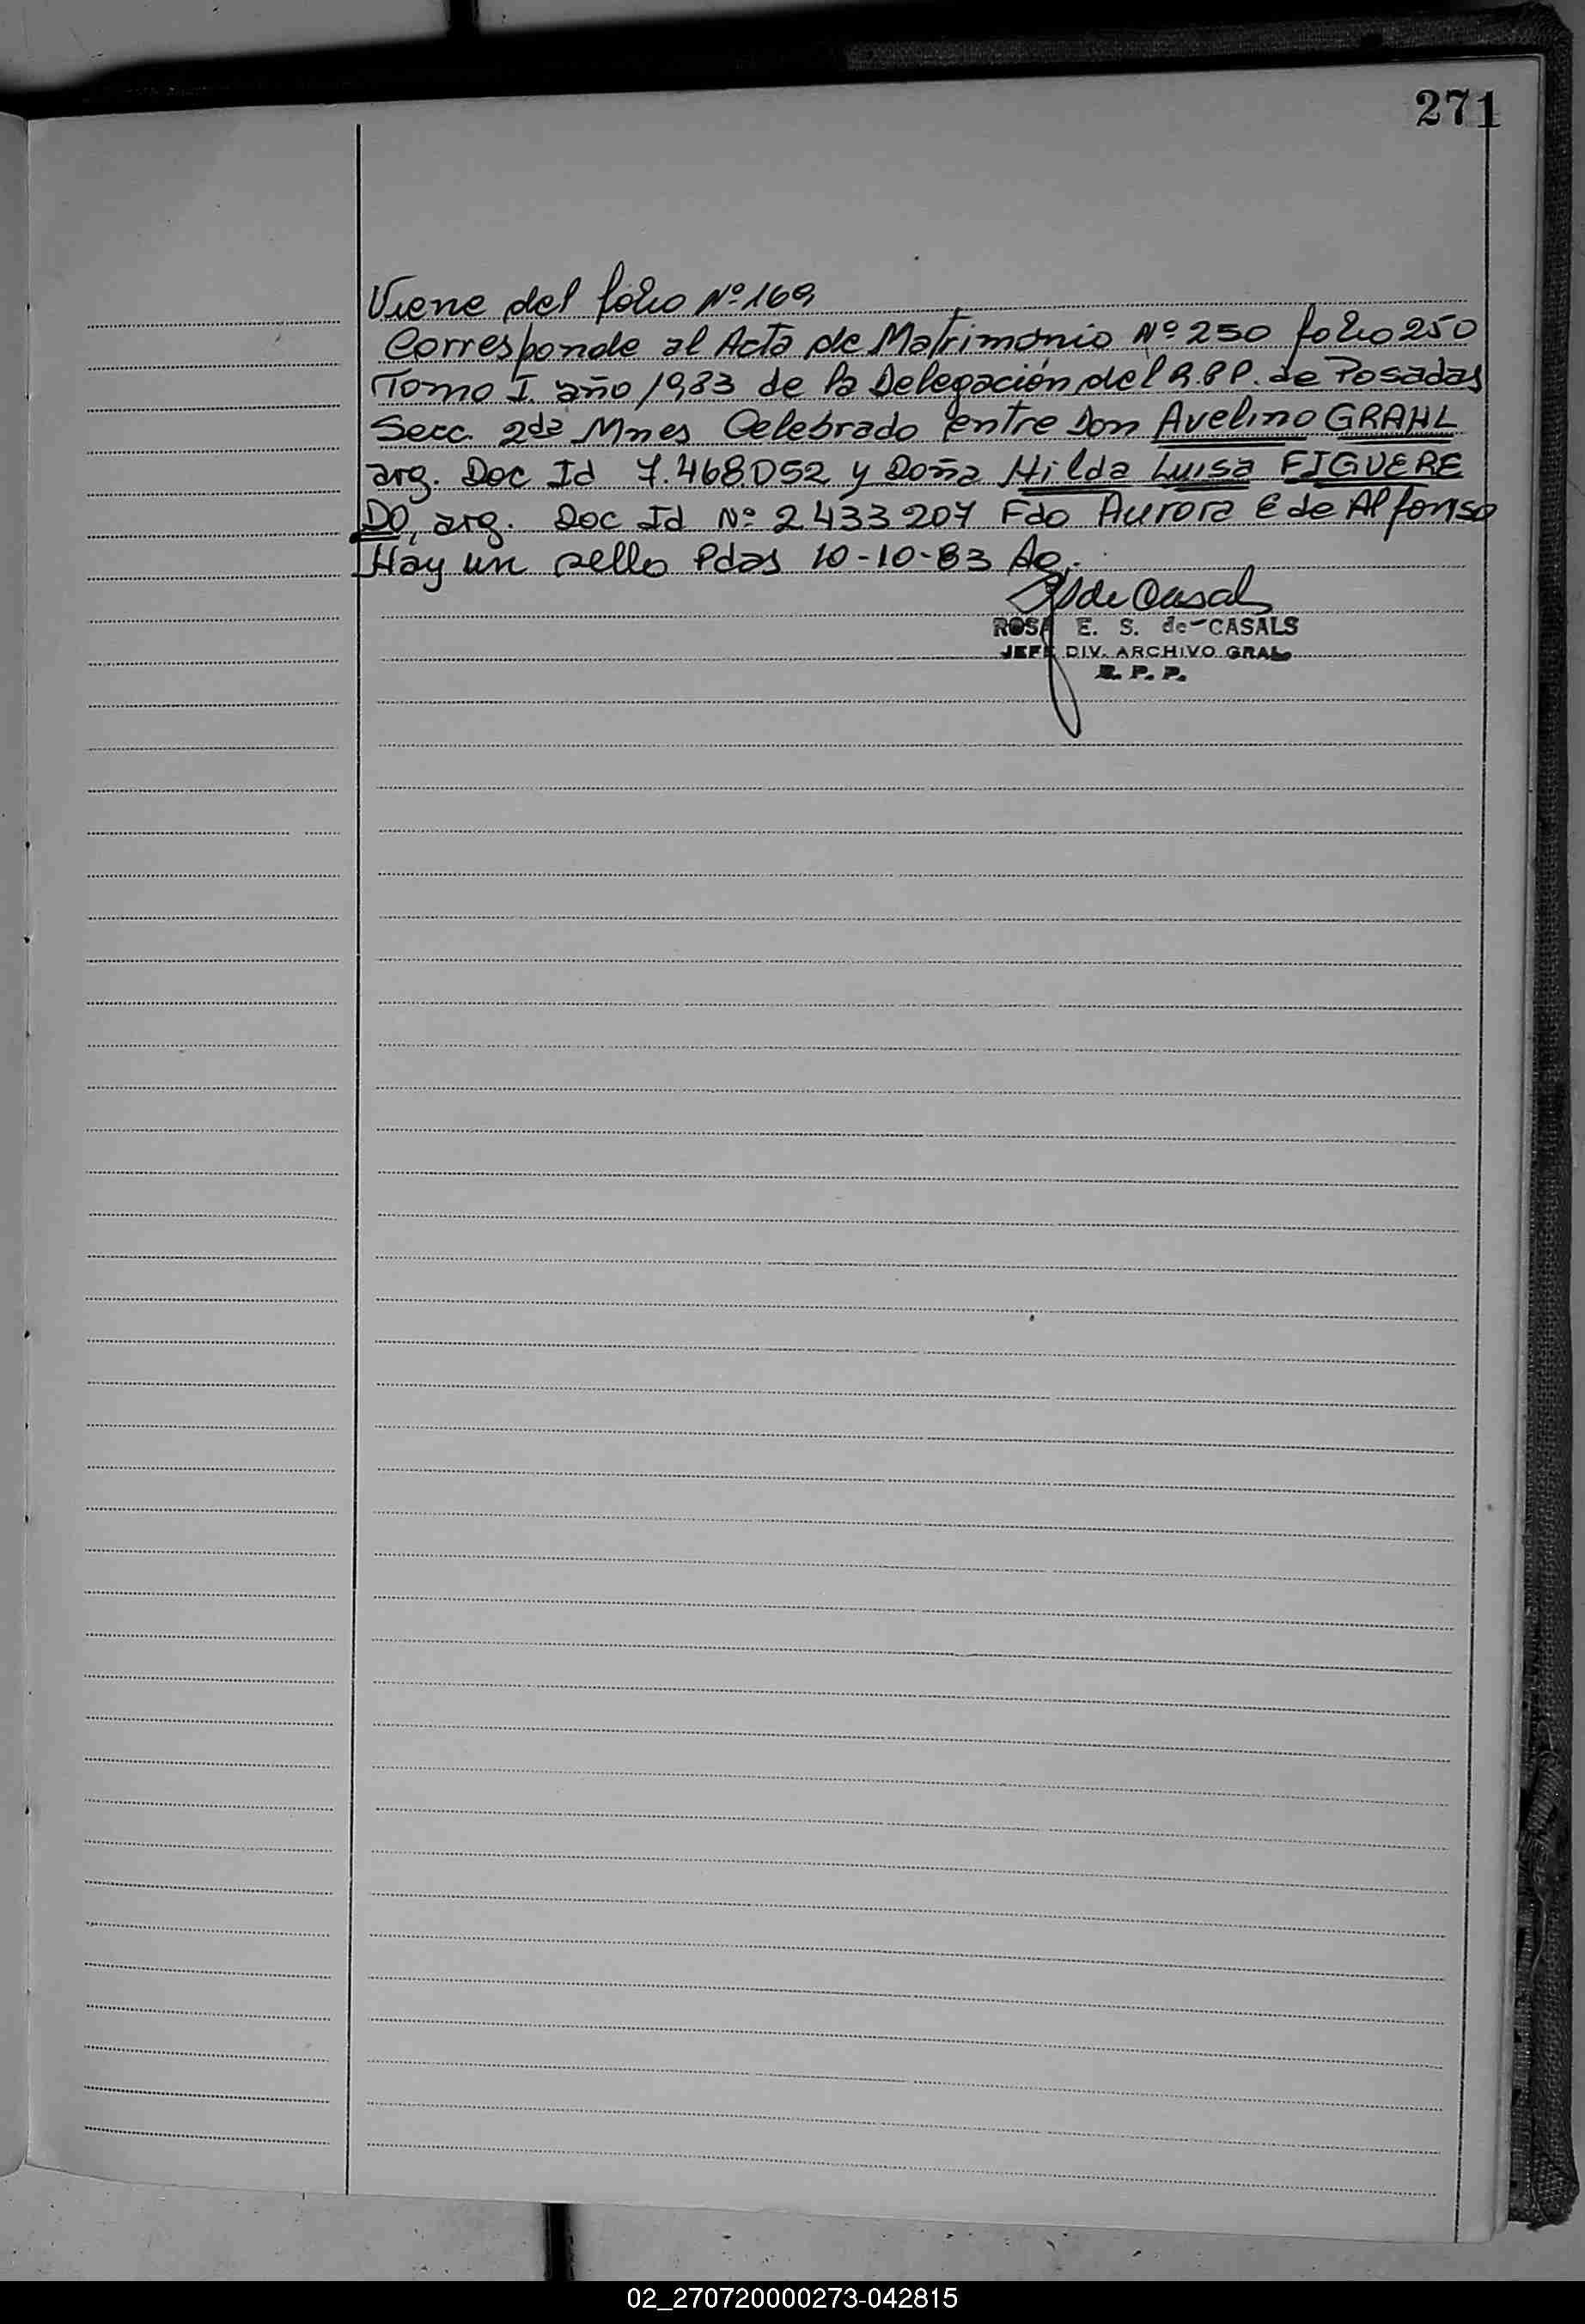 271
Viene del folio Nº 169
Corresponde al Acta de Matrimonio Nº 250 folio 250
Tomo I. año 1983 de la Delegación del R.P.P. de Posadas
Secc. 2da Mnes Celebrado entre Don Avelino GRAHL
arg. Doc Id 7.468.052 y Doña Hilda Luisa FIGUERE
DO, arg. Doc Id Nº 2433207 Fdo Aurora E de Alfonso
Hay un sello Pdas 10-10-83
de Casals
ROSA E. S. de CASALS
JEFE DIV. ARCHIVO GRAL.
R. P. P.
02_270720000273-042815